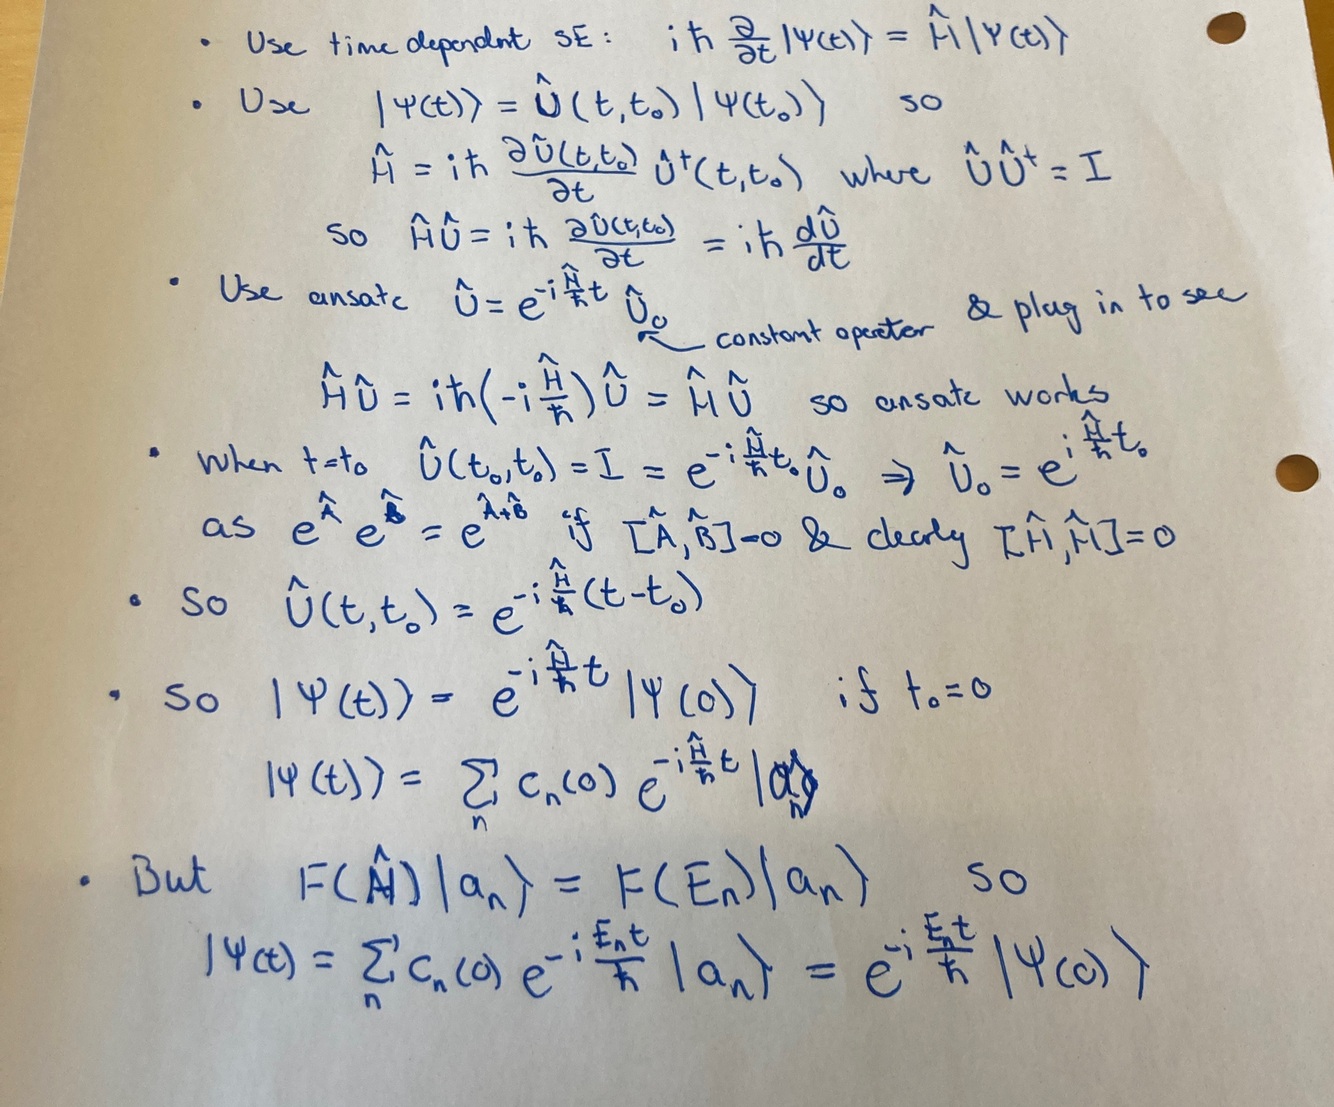 • Use time dependnt SE: iħ ∂/∂t |Ψ(t)⟩ = Ĥ|Ψ(t)⟩
• Use |Ψ(t)⟩ = Û(t,t₀)|Ψ(t₀)⟩ so
Ĥ = iħ ∂Û(t,t₀)/∂t Û†(t,t₀) where ÛÛ† = I
so ĤÛ = iħ ∂Û(t,t₀)/∂t = iħ dÛ/dt
• Use ansatz Û = e^{-i Ĥ/ħ t} Û₀ & plug in to see
constant operator
ĤÛ = iħ(-i Ĥ/ħ)Û = ĤÛ so ansatz works
• when t=t₀ Û(t₀,t₀) = I = e^{-i Ĥ/ħ t₀} Û₀ ⇒ Û₀ = e^{i Ĥ/ħ t₀}
as e^Â e^B̂ = e^{Â+B̂} if [Â,B̂]=0 & clearly [Ĥ,Ĥ]=0
• So Û(t,t₀) = e^{-i Ĥ/ħ (t-t₀)}
• So |Ψ(t)⟩ = e^{-i Ĥ/ħ t} |Ψ(0)⟩ if t₀=0
|Ψ(t)⟩ = Σₙ cₙ(0) e^{-i Ĥ/ħ t} |aₙ⟩
• But F(Ĥ)|aₙ⟩ = F(Eₙ)|aₙ⟩ so
|Ψ(t) = Σₙ cₙ(0) e^{-i Eₙt/ħ} |aₙ⟩ = e^{-i Eₙt/ħ} |Ψ(0)⟩